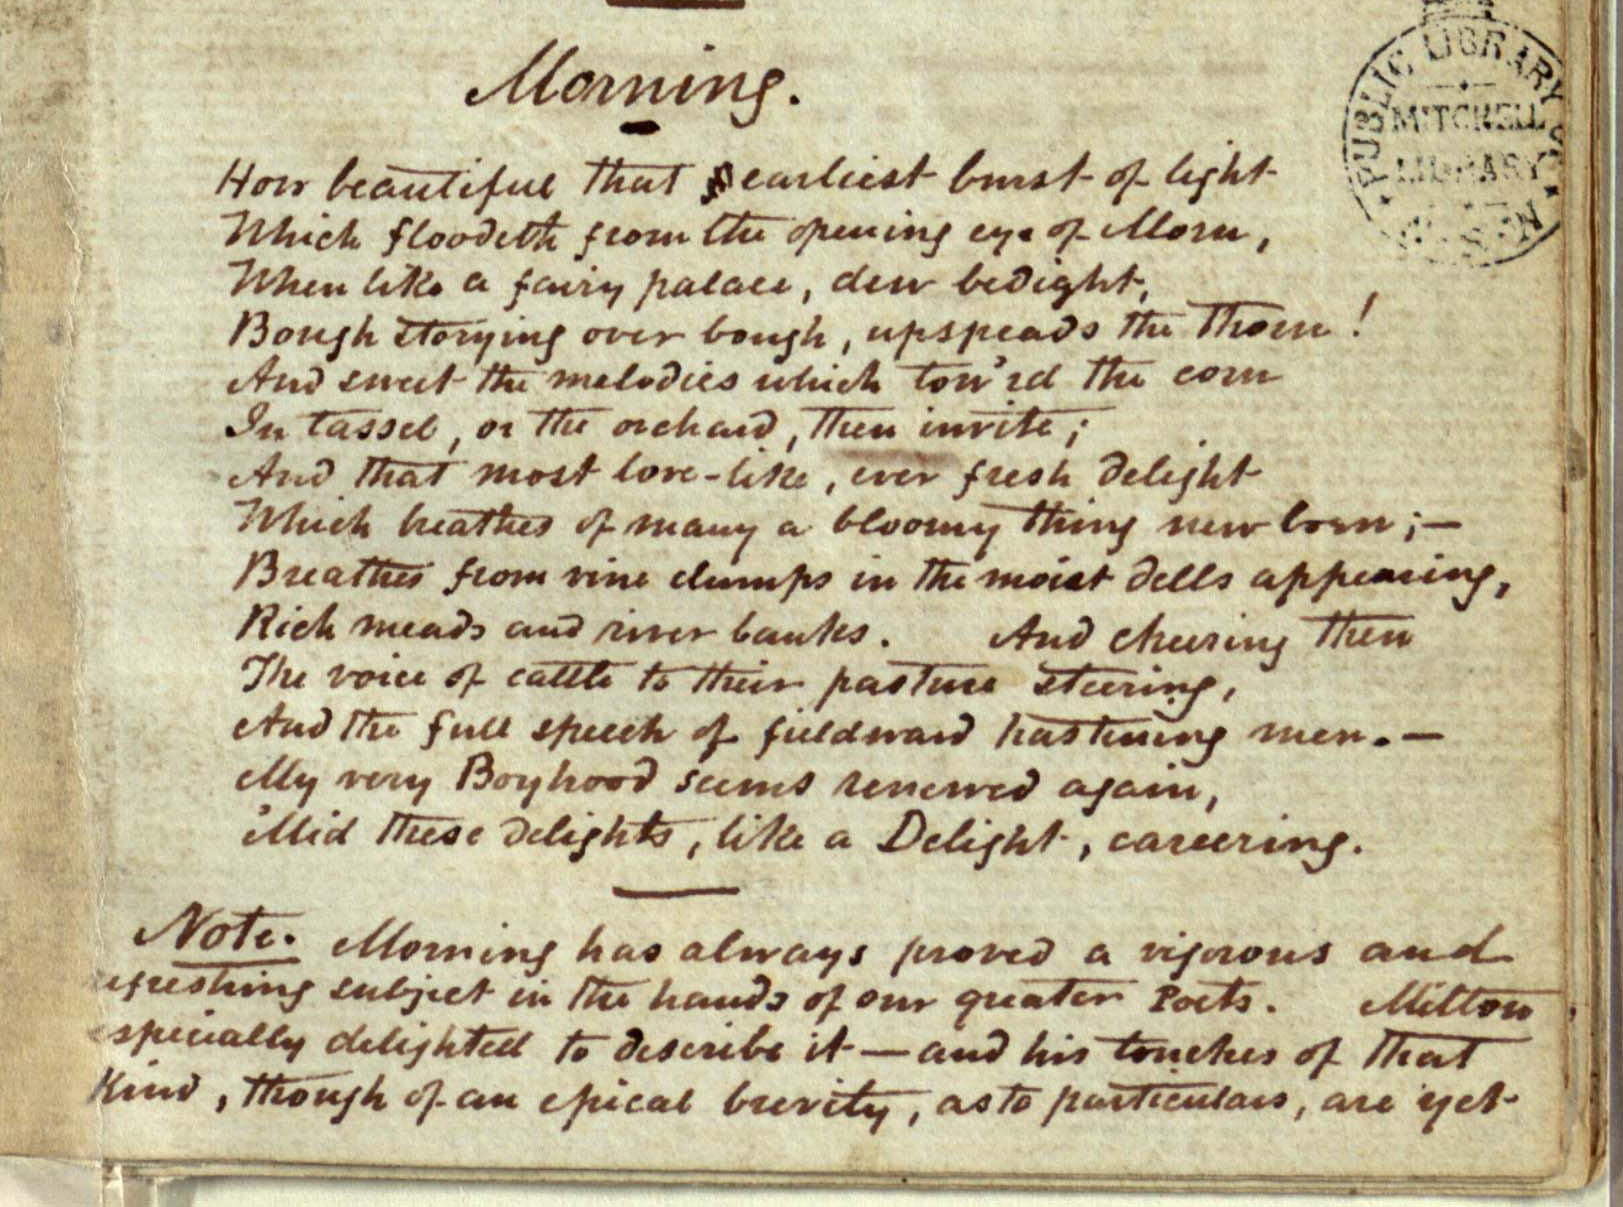 Morning.
How beautiful that earliest burst of light
Which floodeth from the opening eye of Morn,
When like a fairy palace, dew bedight,
Bough storying over bough, upspeads the Thorn!
And sweet the melodies which tow'rd the corn
In tassel, or the orchard, then invite;
And that most love-like, ever fresh delight
Which breathes of many a bloomy thing new born;—
Breathes from vine clumps in the moist dells appearing,
Rich meads and river banks. And cheering then
The voice of cattle to their pasture steering,
And the full speech of fieldward hastening men.—
My very Boyhood seems renewed again,
'Mid these delights, like a Delight, careering.
Note. Morning has always proved a vigorous and
refreshing subject in the hands of our greater Poets. Milton
especially delighted to describe it—and his touches of that
Kind, though of an epical brevity, as to particulars, are yet
PUBLIC LIBRARY OF
MITCHELL
LIBRARY